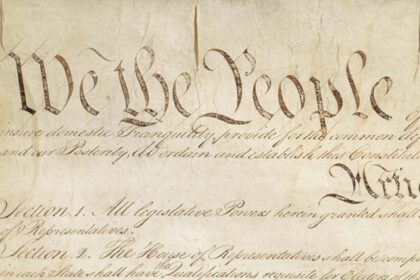 We the People
insure domestic Tranquility, provide for the common
and our Posterity, do ordain and establish this Constitu
Arti
Section. 1. All legislative Powers herein granted shall
of Representatives.
Section. 2. The House of Representatives shall be comp
in each State shall have the Qualifications requisite for Electors